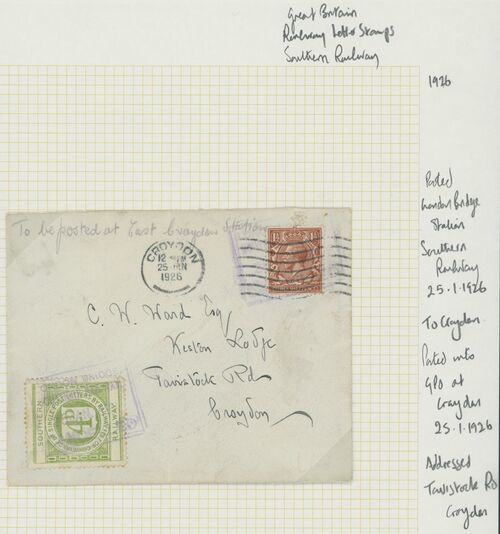 Great Britain
Railway Letter Stamps
Southern Railway
1926
Posted
London Bridge
Station
Southern
Railway
25.1.1926
To Croydon
Posted into
GPO at
Croydon
25.1.1926
Addressed
Tavistock Rd
Croydon
To be posted at East Croydon Station
CROYDON
12 PM
25 JAN
1926
C. W. Ward Esq
Keston Lodge
Tavistock Rd
Croydon
SOUTHERN
RAILWAY
4D